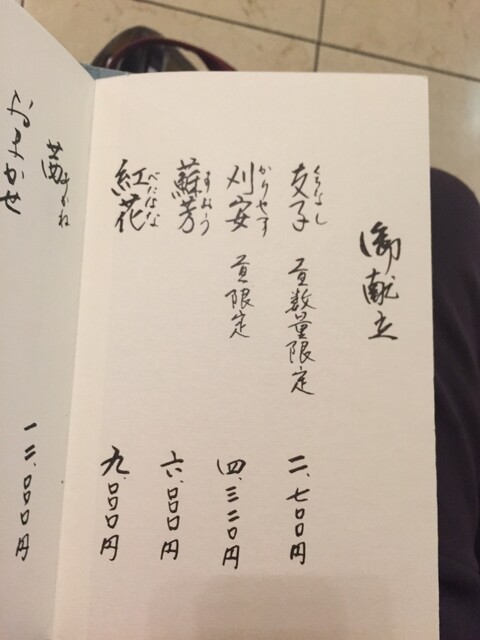 御献立
支子 くちなし 昼数量限定 二、七〇〇円
刈安 かりやす 昼限定 四、三二〇円
蘇芳 すおう 六、〇〇〇円
紅花 べにばな 九、〇〇〇円
茜 あかね 一二、〇〇〇円
おまかせ